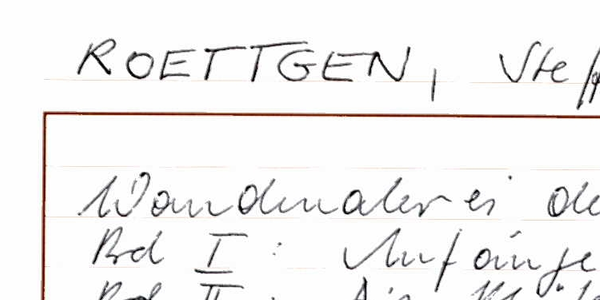 ROETTGEN, Steff
Wandmalerei de
Bd I: Anfänge
Bd II: Die Blüt